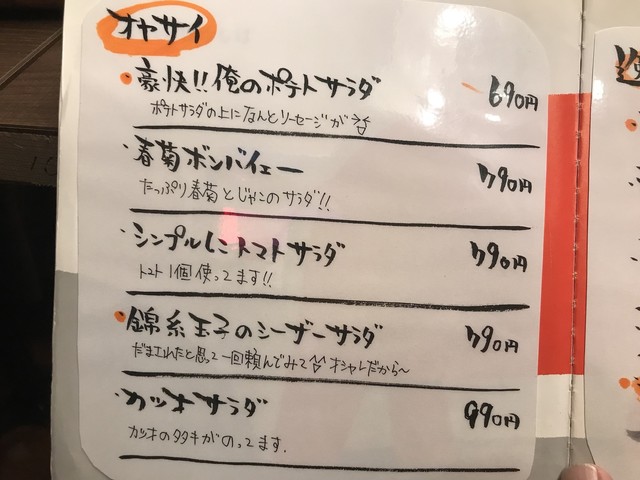 オヤサイ
・豪快!!俺のポテトサラダ 690円
ポテトサラダの上になんとソーセージが
・春菊ボンバイェー 790円
たっぷり春菊とじゃこのサラダ!!
・シンプルにトマトサラダ 790円
トマト1個使ってます!!
・錦糸玉子のシーザーサラダ 790円
だまされたと思って一回頼んでみて オシャレだから～
・カツオサラダ 990円
カツオのタタキがのってます.